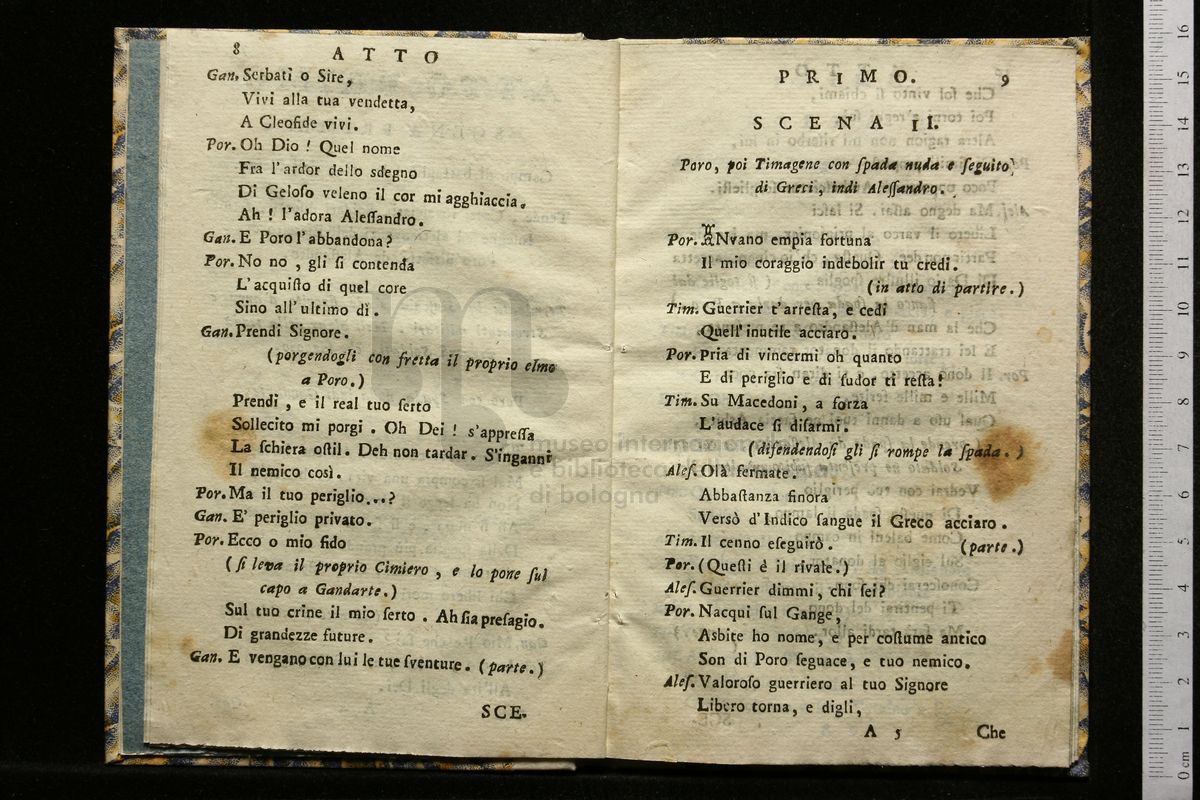 8
ATTO
Gan. Serbati o Sire,
Vivi alla tua vendetta,
A Cleofide vivi.
Por. Oh Dio ! Quel nome
Fra l'ardor dello sdegno
Di Geloſo veleno il cor mi agghiaccia.
Ah ! l'adora Aleſſandro.
Gan. E Poro l'abbandona?
Por. No no , gli ſi contenda
L'acquiſto di quel core
Sino all'ultimo dì.
Gan. Prendi Signore.
(porgendogli con fretta il proprio elmo
a Poro.)
Prendi , e il real tuo ſerto
Sollecito mi porgi . Oh Dei ! s'appreſſa
La ſchiera oſtil. Deh non tardar. S'inganni
Il nemico così.
Por. Ma il tuo periglio...?
Gan. E' periglio privato.
Por. Ecco o mio fido
(ſi leva il proprio Cimiero , e lo pone ſul
capo a Gandarte.)
Sul tuo crine il mio ſerto . Ah ſia preſagio.
Di grandezze future.
Gan. E vengano con lui le tue ſventure. (parte.)
SCE.
PRIMO.
9
SCENA II.
Poro, poi Timagene con ſpada nuda e ſeguito
di Greci, indi Aleſſandro.
Por. INvano empia fortuna
Il mio coraggio indebolir tu credi.
(in atto di partire.)
Tim. Guerrier t'arreſta, e cedi
Quell'inutile acciaro.
Por. Pria di vincermi oh quanto
E di periglio e di ſudor ti reſta!
Tim. Su Macedoni, a forza
L'audace ſi diſarmi.
(difendendoſi gli ſi rompe la ſpada.)
Aleſ. Olà fermate.
Abbaſtanza finora
Versò d'Indico ſangue il Greco acciaro.
Tim. Il cenno eſeguirò. (parte.)
Por. (Queſti è il rivale.)
Aleſ. Guerrier dimmi, chi ſei?
Por. Nacqui ſul Gange,
Asbite ho nome, e per coſtume antico
Son di Poro ſeguace, e tuo nemico.
Aleſ. Valoroſo guerriero al tuo Signore
Libero torna, e digli,
A 5
Che
museo internazionale
biblioteca
di bologna
0 cm 1 2 3 4 5 6 7 8 9 10 11 12 13 14 15 16